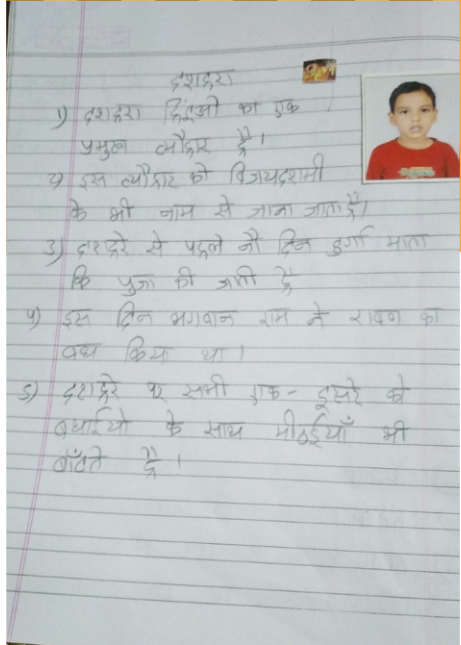 दशहरा
1) दशहरा हिंदुओं का एक
प्रमुख त्यौहार है।
2) इस त्यौहार को विजयदशमी
के भी नाम से जाना जाता है।
3) दशहरे से पहले नौ दिन दुर्गा माता
कि पुजा की जाती है
4) इस दिन भगवान राम ने रावण का
वध किया था।
5) दशहरे पर सभी एक-दूसरे को
बधाईयो के साथ मीठईयाँ भी
बाँटते है।